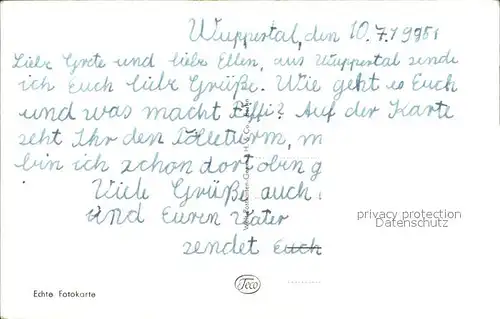 Wuppertal, den 10.7.1958
Liebe Grete und liebe Ellen, aus Wuppertal sende
ich Euch liebe Grüße. Wie geht es Euch
und was macht Piffi? Auf der Karte
seht Ihr den Tölleturm, m
bin ich schon dort oben g
Viele Grüße auch
und Euren Vater
sendet Euch
privacy protection
DOMARKEN
Teco
Echte Fotokarte